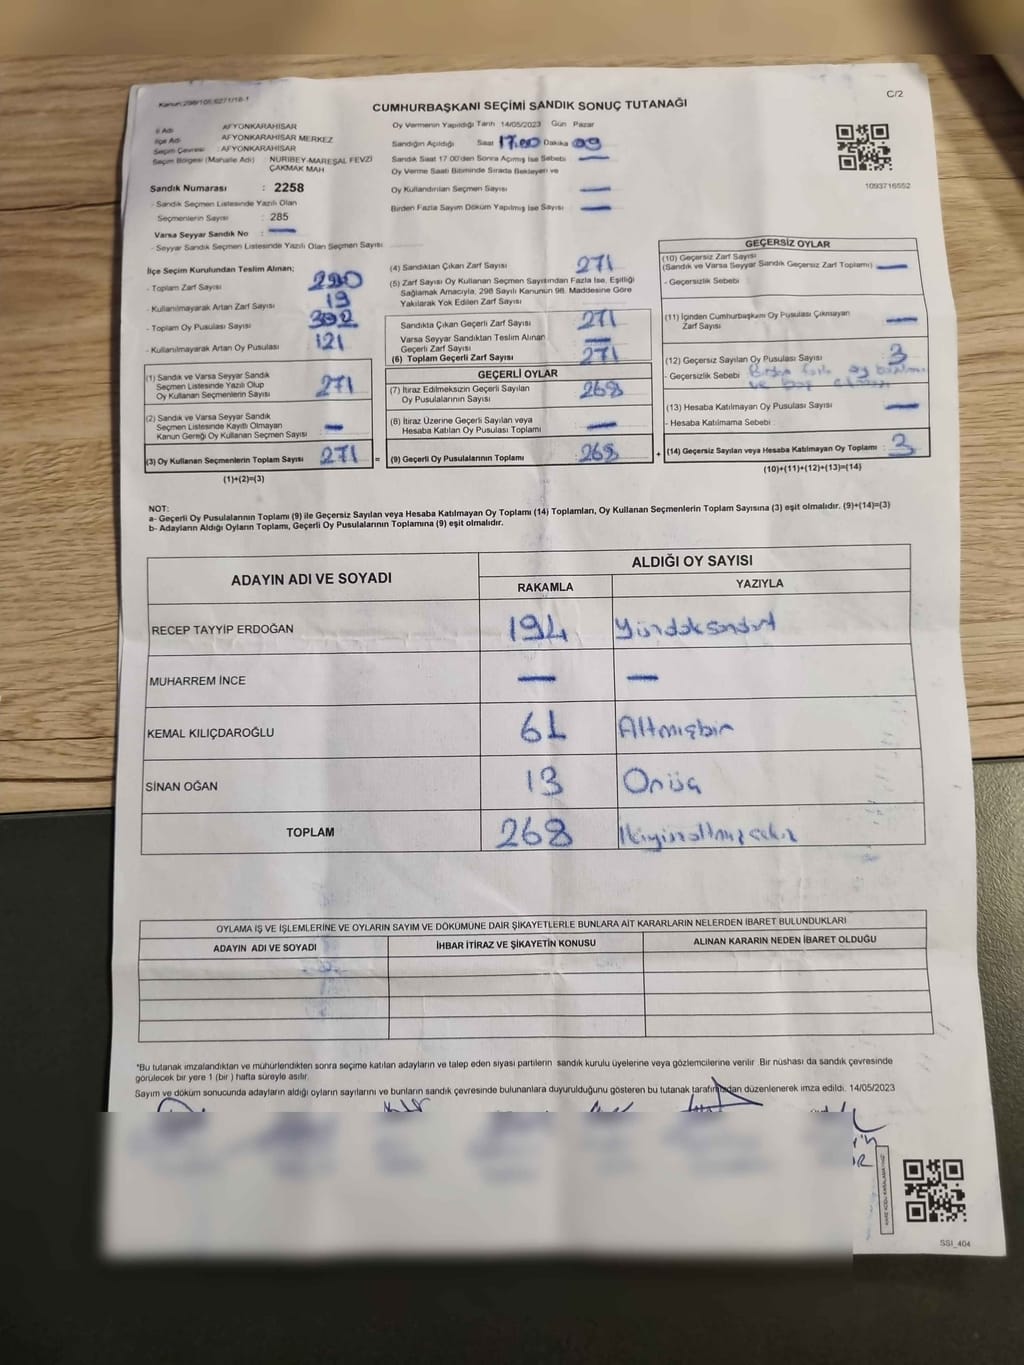 Kanun:298/105;6271/18-1
C/2
CUMHURBAŞKANI SEÇİMİ SANDIK SONUÇ TUTANAĞI
İl Adı AFYONKARAHİSAR
İlçe Adı : AFYONKARAHİSAR MERKEZ
Seçim Çevresi : AFYONKARAHİSAR
Seçim Bölgesi (Mahalle Adı) : NURIBEY-MAREŞAL FEVZİ ÇAKMAK MAH
Sandık Numarası : 2258
- Sandık Seçmen Listesinde Yazılı Olan
Seçmenlerin Sayısı : 285
Varsa Seyyar Sandık No : —
- Seyyar Sandık Seçmen Listesinde Yazılı Olan Seçmen Sayısı
Oy Vermenin Yapıldığı Tarih 14/05/2023 Gün Pazar
Sandığın Açıldığı Saat 17.00 Dakika 09
Sandık Saat 17:00'den Sonra Açılmış İse Sebebi —
Oy Verme Saati Bitiminde Sırada Bekleyen ve
Oy Kullandırılan Seçmen Sayısı —
Birden Fazla Sayım Döküm Yapılmış İse Sayısı —
1093716552
İlçe Seçim Kurulundan Teslim Alınan;
- Toplam Zarf Sayısı : 290
- Kullanılmayarak Artan Zarf Sayısı : 19
- Toplam Oy Pusulası Sayısı : 392
- Kullanılmayarak Artan Oy Pusulası : 121
(1) Sandık ve Varsa Seyyar Sandık
Seçmen Listesinde Yazılı Olup
Oy Kullanan Seçmenlerin Sayısı : 271
(2) Sandık ve Varsa Seyyar Sandık
Seçmen Listesinde Kayıtlı Olmayan
Kanun Gereği Oy Kullanan Seçmen Sayısı : —
(3) Oy Kullanan Seçmenlerin Toplam Sayısı : 271 =
(1)+(2)=(3)
(4) Sandıktan Çıkan Zarf Sayısı : 271
(5) Zarf Sayısı Oy Kullanan Seçmen Sayısından Fazla İse, Eşitliği
Sağlamak Amacıyla, 298 Sayılı Kanunun 98. Maddesine Göre
Yakılarak Yok Edilen Zarf Sayısı
Sandıkta Çıkan Geçerli Zarf Sayısı : 271
Varsa Seyyar Sandıktan Teslim Alınan
Geçerli Zarf Sayısı : —
(6) Toplam Geçerli Zarf Sayısı : 271
GEÇERLİ OYLAR
(7) İtiraz Edilmeksizin Geçerli Sayılan
Oy Pusulalarının Sayısı : 268
(8) İtiraz Üzerine Geçerli Sayılan veya
Hesaba Katılan Oy Pusulası Toplamı : —
(9) Geçerli Oy Pusulalarının Toplamı : 268 +
GEÇERSİZ OYLAR
(10) Geçersiz Zarf Sayısı
(Sandık ve Varsa Seyyar Sandık Geçersiz Zarf Toplamı) : —
- Geçersizlik Sebebi
(11) İçinden Cumhurbaşkanı Oy Pusulası Çıkmayan
Zarf Sayısı : —
(12) Geçersiz Sayılan Oy Pusulası Sayısı : 3
- Geçersizlik Sebebi : Birden fazla oy
ve boş
(13) Hesaba Katılmayan Oy Pusulası Sayısı : —
- Hesaba Katılmama Sebebi :
(14) Geçersiz Sayılan veya Hesaba Katılmayan Oy Toplamı : 3
(10)+(11)+(12)+(13)=(14)
NOT:
a- Geçerli Oy Pusulalarının Toplamı (9) ile Geçersiz Sayılan veya Hesaba Katılmayan Oy Toplamı (14) Toplamları, Oy Kullanan Seçmenlerin Toplam Sayısına (3) eşit olmalıdır. (9)+(14)=(3)
b- Adayların Aldığı Oyların Toplamı, Geçerli Oy Pusulalarının Toplamına (9) eşit olmalıdır.
ADAYIN ADI VE SOYADI ALDIĞI OY SAYISI
RAKAMLA YAZIYLA
RECEP TAYYİP ERDOĞAN 194 Yüzdoksandört
MUHARREM İNCE — —
KEMAL KILIÇDAROĞLU 61 Altmışbir
SİNAN OĞAN 13 Onüç
TOPLAM 268 İkiyüzaltmışsekiz
OYLAMA İŞ VE İŞLEMLERİNE VE OYLARIN SAYIM VE DÖKÜMÜNE DAİR ŞİKAYETLERLE BUNLARA AİT KARARLARIN NELERDEN İBARET BULUNDUKLARI
ADAYIN ADI VE SOYADI İHBAR İTİRAZ VE ŞİKAYETİN KONUSU ALINAN KARARIN NEDEN İBARET OLDUĞU
*Bu tutanak imzalandıktan ve mühürlendikten sonra seçime katılan adayların ve talep eden siyasi partilerin sandık kurulu üyelerine veya gözlemcilerine verilir. Bir nüshası da sandık çevresinde
görülecek bir yere 1 (bir) hafta süreyle asılır.
Sayım ve döküm sonucunda adayların aldığı oyların sayılarını ve bunların sandık çevresinde bulunanlara duyurulduğunu gösteren bu tutanak tarafımızdan düzenlenerek imza edildi. 14/05/2023
SSI_404